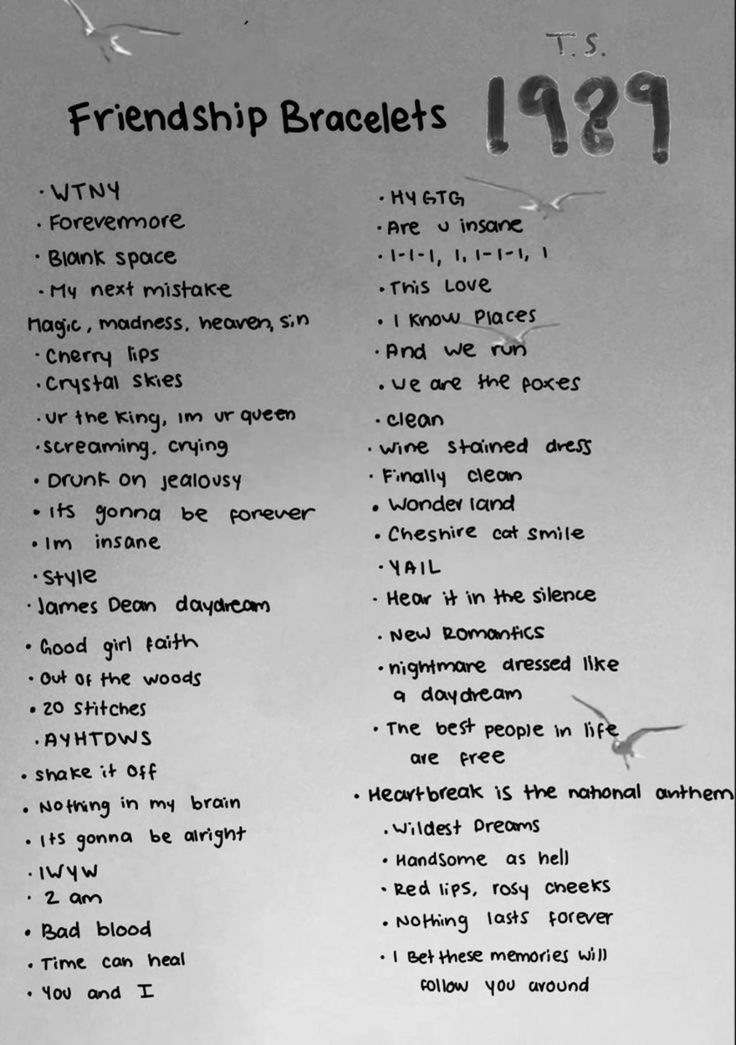 T.S.
Friendship Bracelets 1989
· WTNY
· Forevermore
· Blank space
· My next mistake
Magic, madness, heaven, sin
· Cherry lips
· Crystal skies
· ur the King, im ur queen
· screaming, crying
· Drunk on jealousy
· its gonna be forever
· Im insane
· Style
· James Dean daydream
· Good girl faith
· Out of the woods
· 20 stitches
· AYHTDWS
· shake it off
· Nothing in my brain
· Its gonna be alright
· IWYW
· 2 am
· Bad blood
· Time can heal
· You and I
· HYGTG
· Are u insane
· 1-1-1, 1, 1-1-1, 1
· This Love
· I Know Places
· And we run
· we are the foxes
· clean
· wine stained dress
· Finally clean
· Wonderland
· Cheshire cat smile
· YAIL
· Hear it in the silence
· New Romantics
· nightmare dressed like
a daydream
· The best people in life
are free
· Heartbreak is the national anthem
· Wildest Dreams
· Handsome as hell
· Red lips, rosy cheeks
· Nothing lasts forever
· I Bet these memories will
follow you around